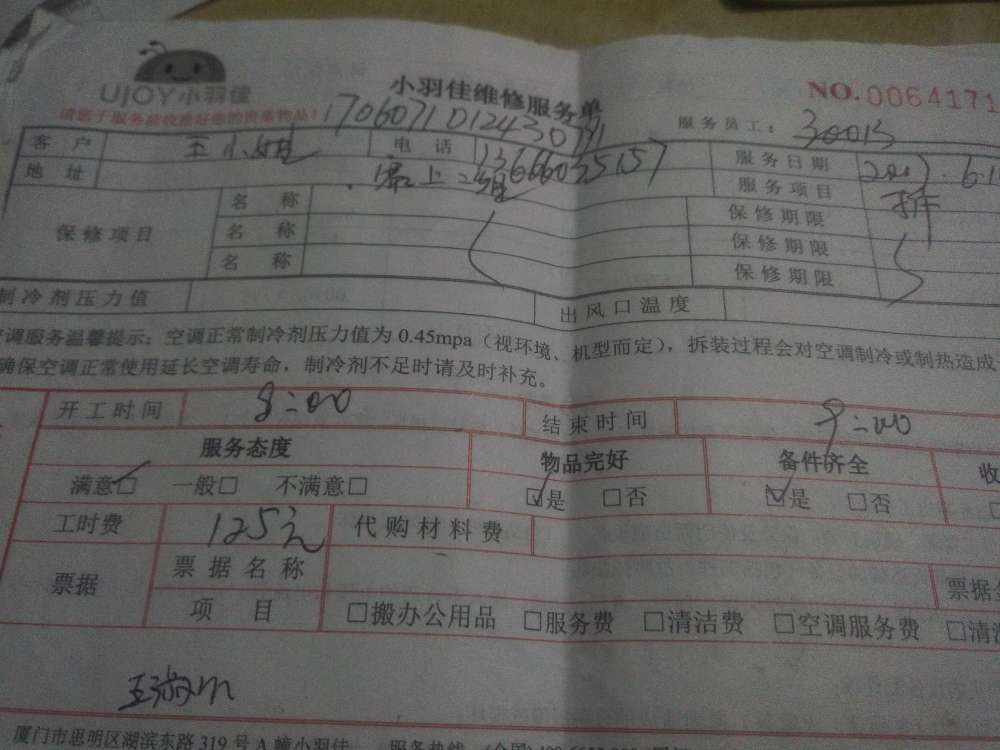 UJOY小羽佳
小羽佳维修服务单
NO.0064171
17060710124430
服务员工:
客户 王小姐 电话 13666035157 服务日期
地址 服务项目 拆
保修项目 名称 保修期限
名称 保修期限
名称 保修期限
制冷剂压力值 出风口温度
调服务温馨提示:空调正常制冷剂压力值为0.45mpa(视环境、机型而定),拆装过程会对空调制冷或制热造成
确保空调正常使用延长空调寿命,制冷剂不足时请及时补充。
开工时间 8:00 结束时间 9:00
服务态度 物品完好 备件齐全 收
满意□ 一般□ 不满意□ ☑是 □否 ☑是 □否
工时费 125元 代购材料费
票据 票据名称 票据金
项目 □搬办公用品 □服务费 □清洁费 □空调服务费 □清洗
厦门市思明区湖滨东路319号A幢小羽佳 服务热线 (全国)400-6655